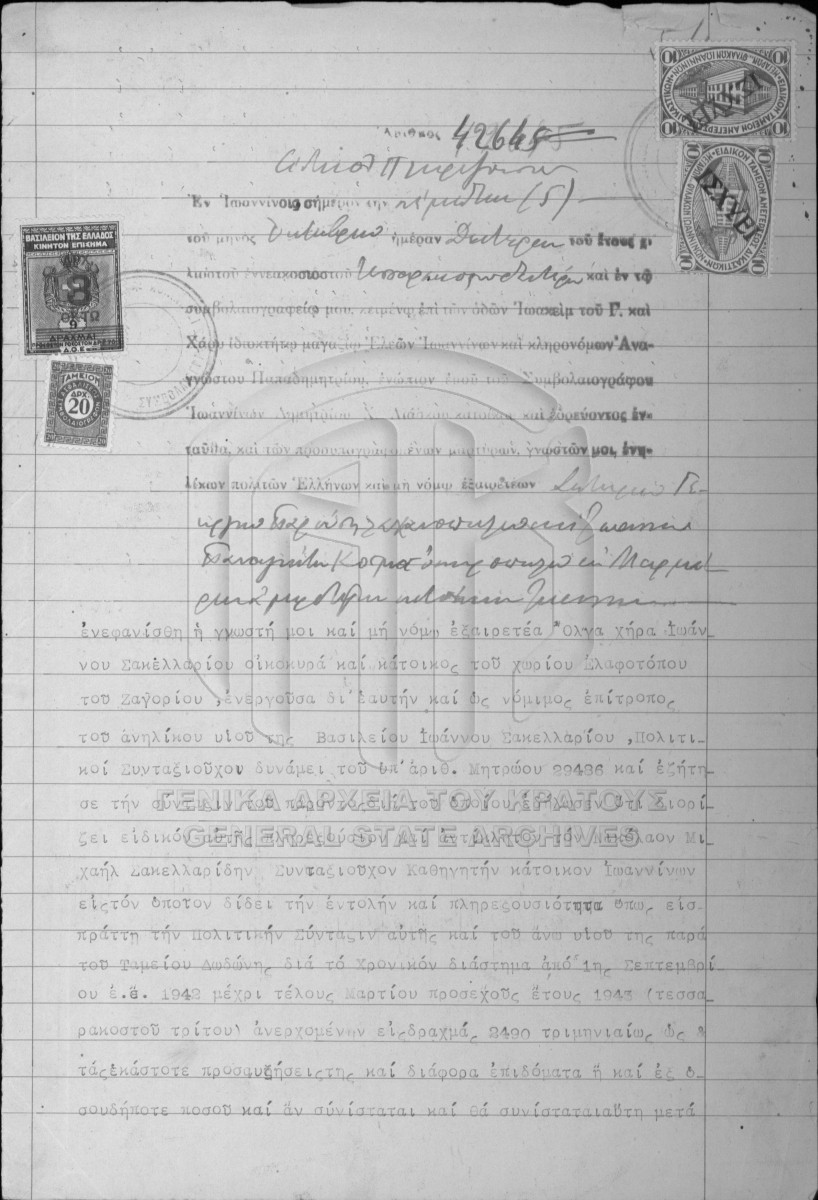 Ἀριθμὸς 42645
Ἐν Ἰωαννίνοις σήμερον τὴν πέμπτην (5)
τοῦ μηνὸς Ὀκτωβρίου ἡμέραν Δευτέραν τοῦ ἔτους χι-
λιοστοῦ ἐννεακοσιοστοῦ τεσσαρακοστοῦ δευτέρου καὶ ἐν τῷ
συμβολαιογραφείῳ μου, κειμένῳ ἐπὶ τῶν ὁδῶν Ἰωακεὶμ τοῦ Γ. καὶ
Χάρω ἰδιοκτήτῳ μαγαζίῳ Ἐλεῶν Ἰωαννίνων καὶ κληρονόμων Ἀνα-
γνώστου Παπαδημητρίου, ἐνώπιον ἐμοῦ τοῦ Συμβολαιογράφου
Ἰωαννίνων Δημητρίου Χ. κατοίκου καὶ ἑδρεύοντος ἐν-
ταῦθα, καὶ τῶν προσυπογραφομένων μαρτύρων, γνωστῶν μοι, ἐνη-
λίκων πολιτῶν Ἑλλήνων καὶ μὴ νόμῳ ἐξαιρετέων Σωτηρίου Γε-
ωργίου
Παναγιώτη Κοσμᾶ
ἐνεφανίσθη ἡ γνωστή μοι καί μή νόμῳ ἐξαιρετέα Ὄλγα χήρα Ἰωάν-
νου Σακελλαρίου οἰκοκυρά καί κάτοικος τοῦ χωρίου Ἐλαφοτόπου
τοῦ Ζαγορίου ,ἐνεργοῦσα δι'ἑαυτήν καί ὡς νόμιμος ἐπίτροπος
τοῦ ἀνηλίκου υἱοῦ της Βασιλείου Ἰωάννου Σακελλαρίου ,Πολιτι-
κοί Συνταξιοῦχοι δυνάμει τοῦ ὑπ'ἀριθ. Μητρώου 29486 καί ἐζήτη-
σε τήν σύνταξιν τοῦ παρόντος διά τοῦ ὁποίου ἐδήλωσεν ὅτι διορί-
ζει εἰδικόν αὐτῆς πληρεξούσιον καί ἀντιλήπτορ τόν Νικόλαον Μι-
χαήλ Σακελλαρίδην Συνταξιοῦχον Καθηγητήν κάτοικον Ἰωαννίνων
εἰςτόν ὁποῖον δίδει τήν ἐντολήν καί πληρεξουσιότητα ὅπως εἰσ-
πράττῃ τήν Πολιτικήν Σύνταξιν αὐτῆς καί τοῦ ἄνω υἱοῦ της παρά
τοῦ Ταμείου Δωδώνης διά τό Χρονικόν διάστημα ἀπό 1ης Σεπτεμβρί
ου ἐ.ἔ. 1942 μέχρι τέλους Μαρτίου προσεχοῦς ἔτους 1943 (τεσσα-
ρακοστοῦ τρίτου) ἀνερχομένων εἰςδραχμάς 2490 τριμηνιαίως ὡς &
τάςἑκάστοτε προσαυξήσειςτης καί διάφορα ἐπιδόματα ἤ καί ἐξ ὁ-
σουδήποτε ποσοῦ καί ἄν συνίσταται καί θά συνίσταταιαὕτη μετά
ΒΑΣΙΛΕΙΟΝ ΤΗΣ ΕΛΛΑΔΟΣ
ΚΙΝΗΤΟΝ ΕΠΙΣΗΜΑ
8
ΟΚΤΩ
ΔΡΑΧΜΑΙ
ΤΑΜΕΙΟΝ
ΔΡΧ.
20
ΙΣΧΥΕΙ
ΙΣΧΥΕΙ
10
ΓΕΝΙΚΑ ΑΡΧΕΙΑ ΤΟΥ ΚΡΑΤΟΥΣ
GENERAL STATE ARCHIVES